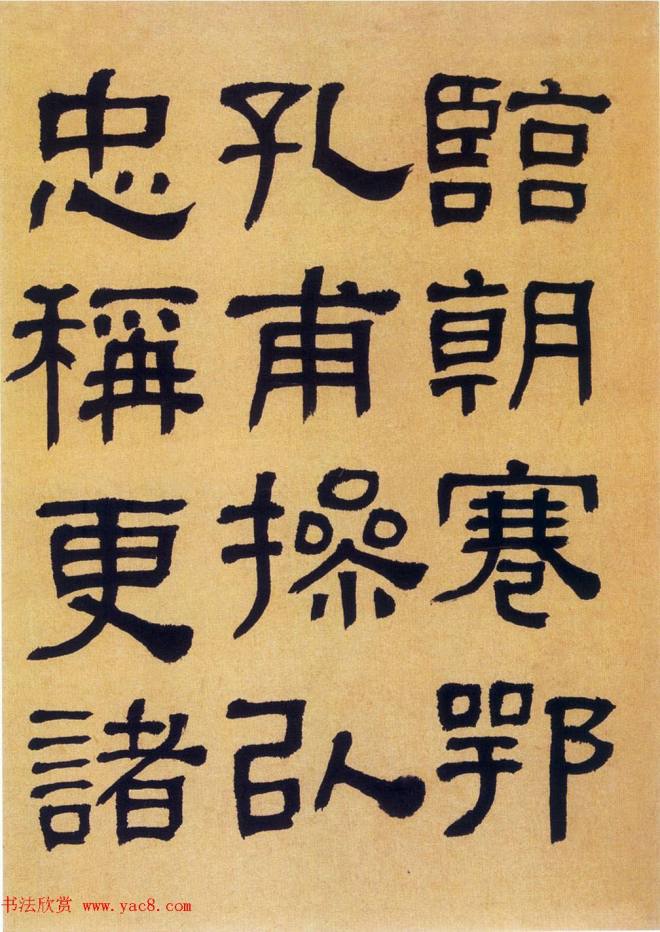 臨朝寋鄂
孔甫操以
忠稱更諸
书法欣赏 www.yac8.com